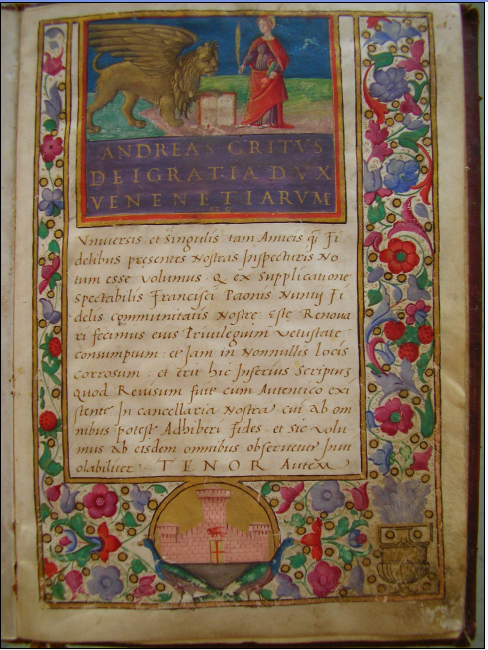 ANDREAS GRITVS
DEI GRATIA DVX
VENENETIARVM
Vniuersis et singulis tam Amicis q̃ Fi
delibus presentes Nostras Inspecturis No
tum esse volumus q̃ ex Supplicatione
spectabilis Francisci Paonis Nuntij Fi
delis communitatis Nostre Este Renoua
ri fecimus eius Priuilegium Vetustate
consumptum: et Jam in Nonnullis locis
corrosum: et erit hic Inferius Scriptus
quod Reuisum fuit cum Autentico exi
stente In cancellaria Nostra cui ab om
nibus potest Adhiberi fides et sic volu
mus ab eisdem omnibus obseruetur Inui
olabiliter. TENOR Autem